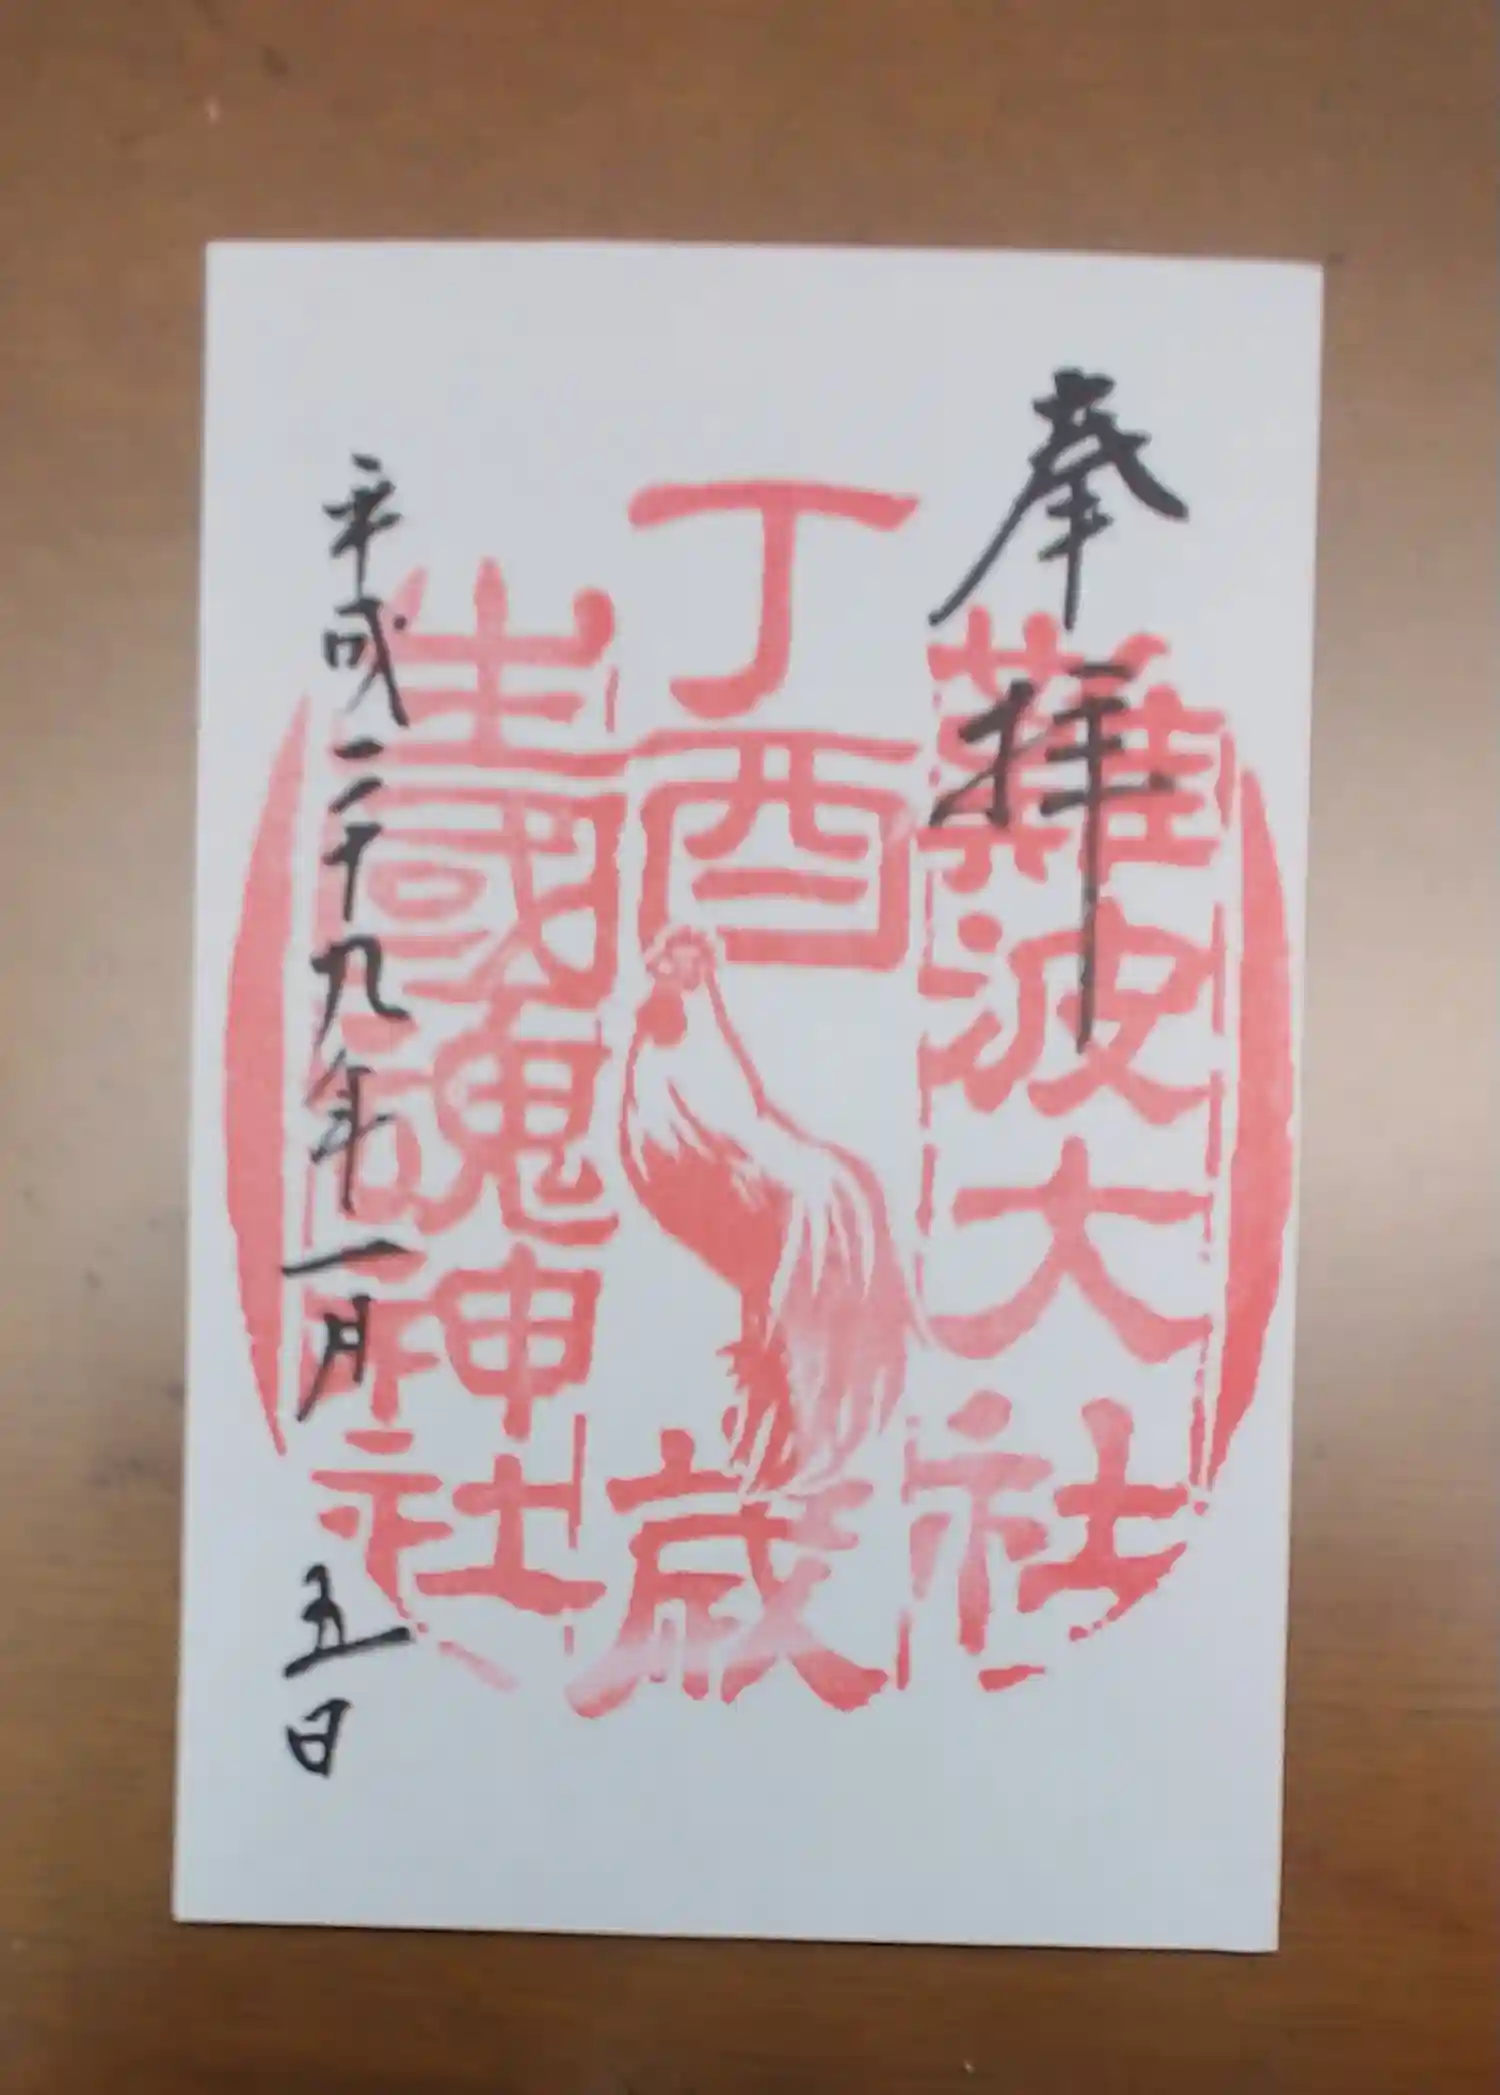 奉拝
難波大社
丁酉歳
生國魂神社
平成二十九年一月五日